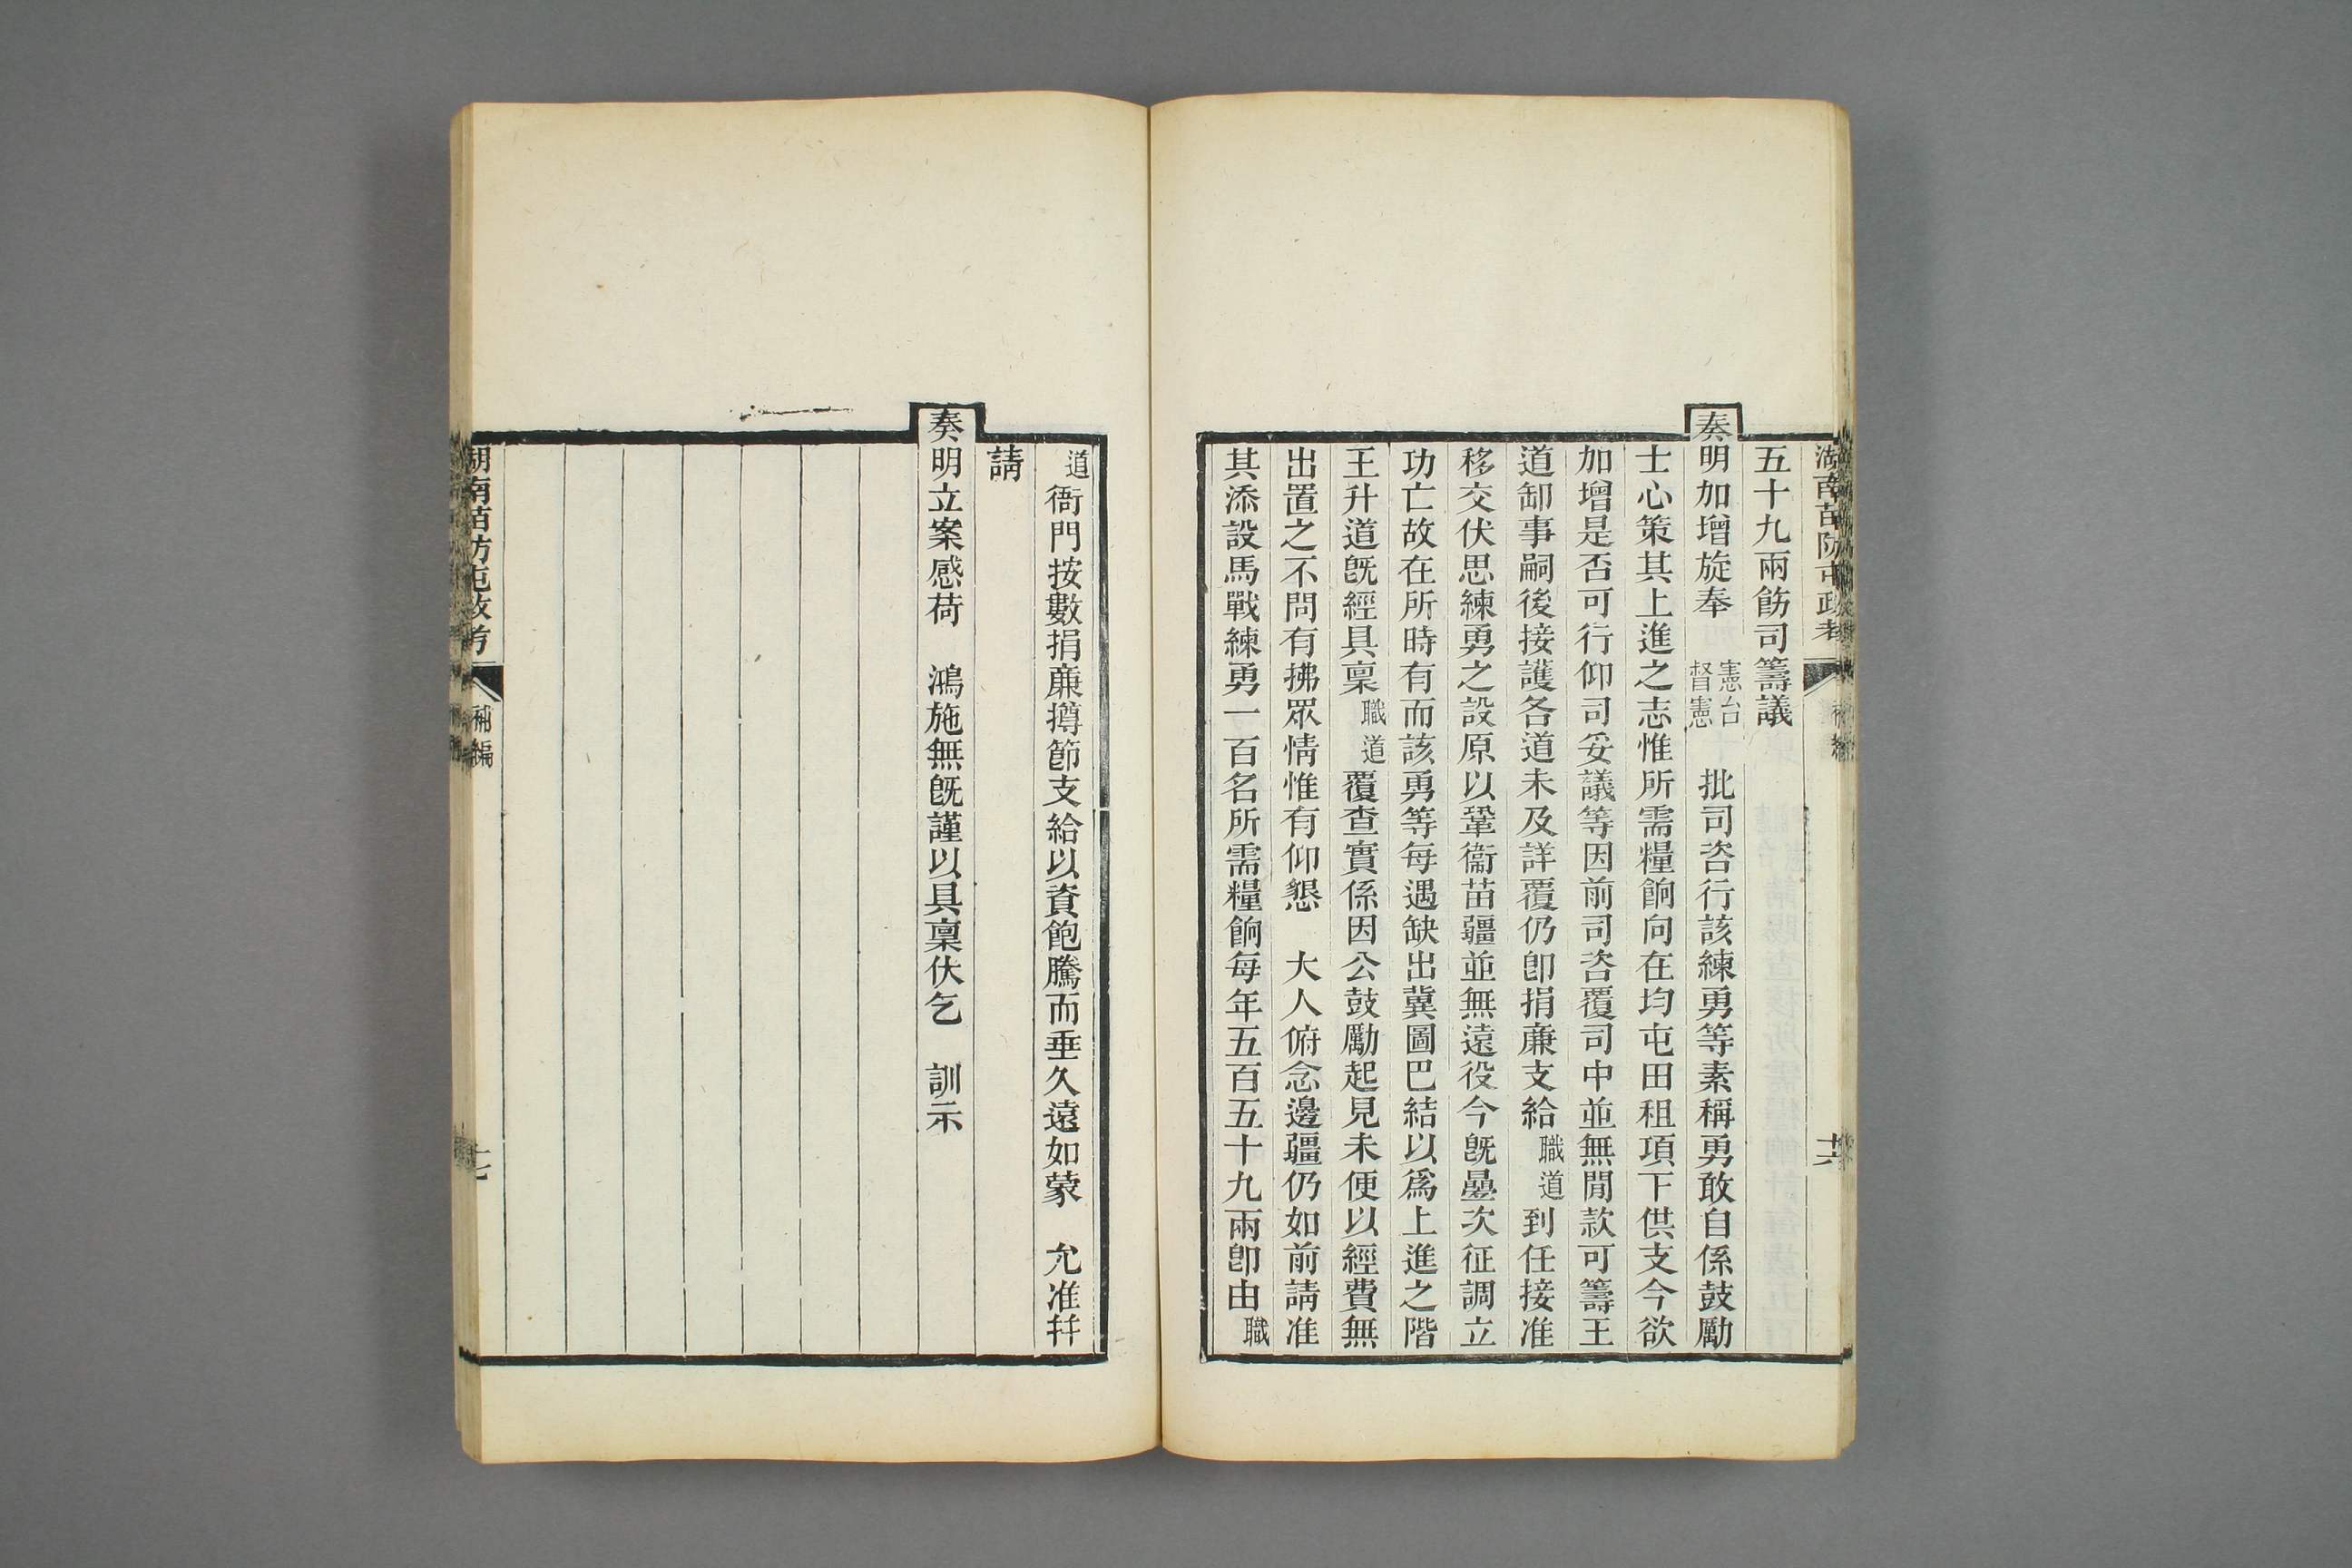 湖南苗防屯政考
補編
十六
五十九兩飭司籌議
奏明加增旋奉 憲台督憲 批司咨行該練勇等素稱勇敢自係鼓勵
士心策其上進之志惟所需糧餉向在均屯田租項下供支今欲
加增是否可行仰司妥議等因前司咨覆司中並無閒款可籌王
道卸事嗣後接護各道未及詳覆仍卽捐廉支給職道到任接准
移交伏思練勇之設原以鞏衞苗疆並無遠役今旣曡次征調立
功亡故在所時有而該勇等每遇缺出冀圖巴結以爲上進之階
王升道旣經具稟職道覆查實係因公鼓勵起見未便以經費無
出置之不問有拂眾情惟有仰懇 大人俯念邊疆仍如前請准
其添設馬戰練勇一百名所需糧餉每年五百五十九兩卽由職
道衙門按數捐廉撙節支給以資飽騰而垂久遠如蒙 允准幷
請
奏明立案感荷 鴻施無旣謹以具稟伏乞 訓示
湖南苗防屯政考
補編
十七